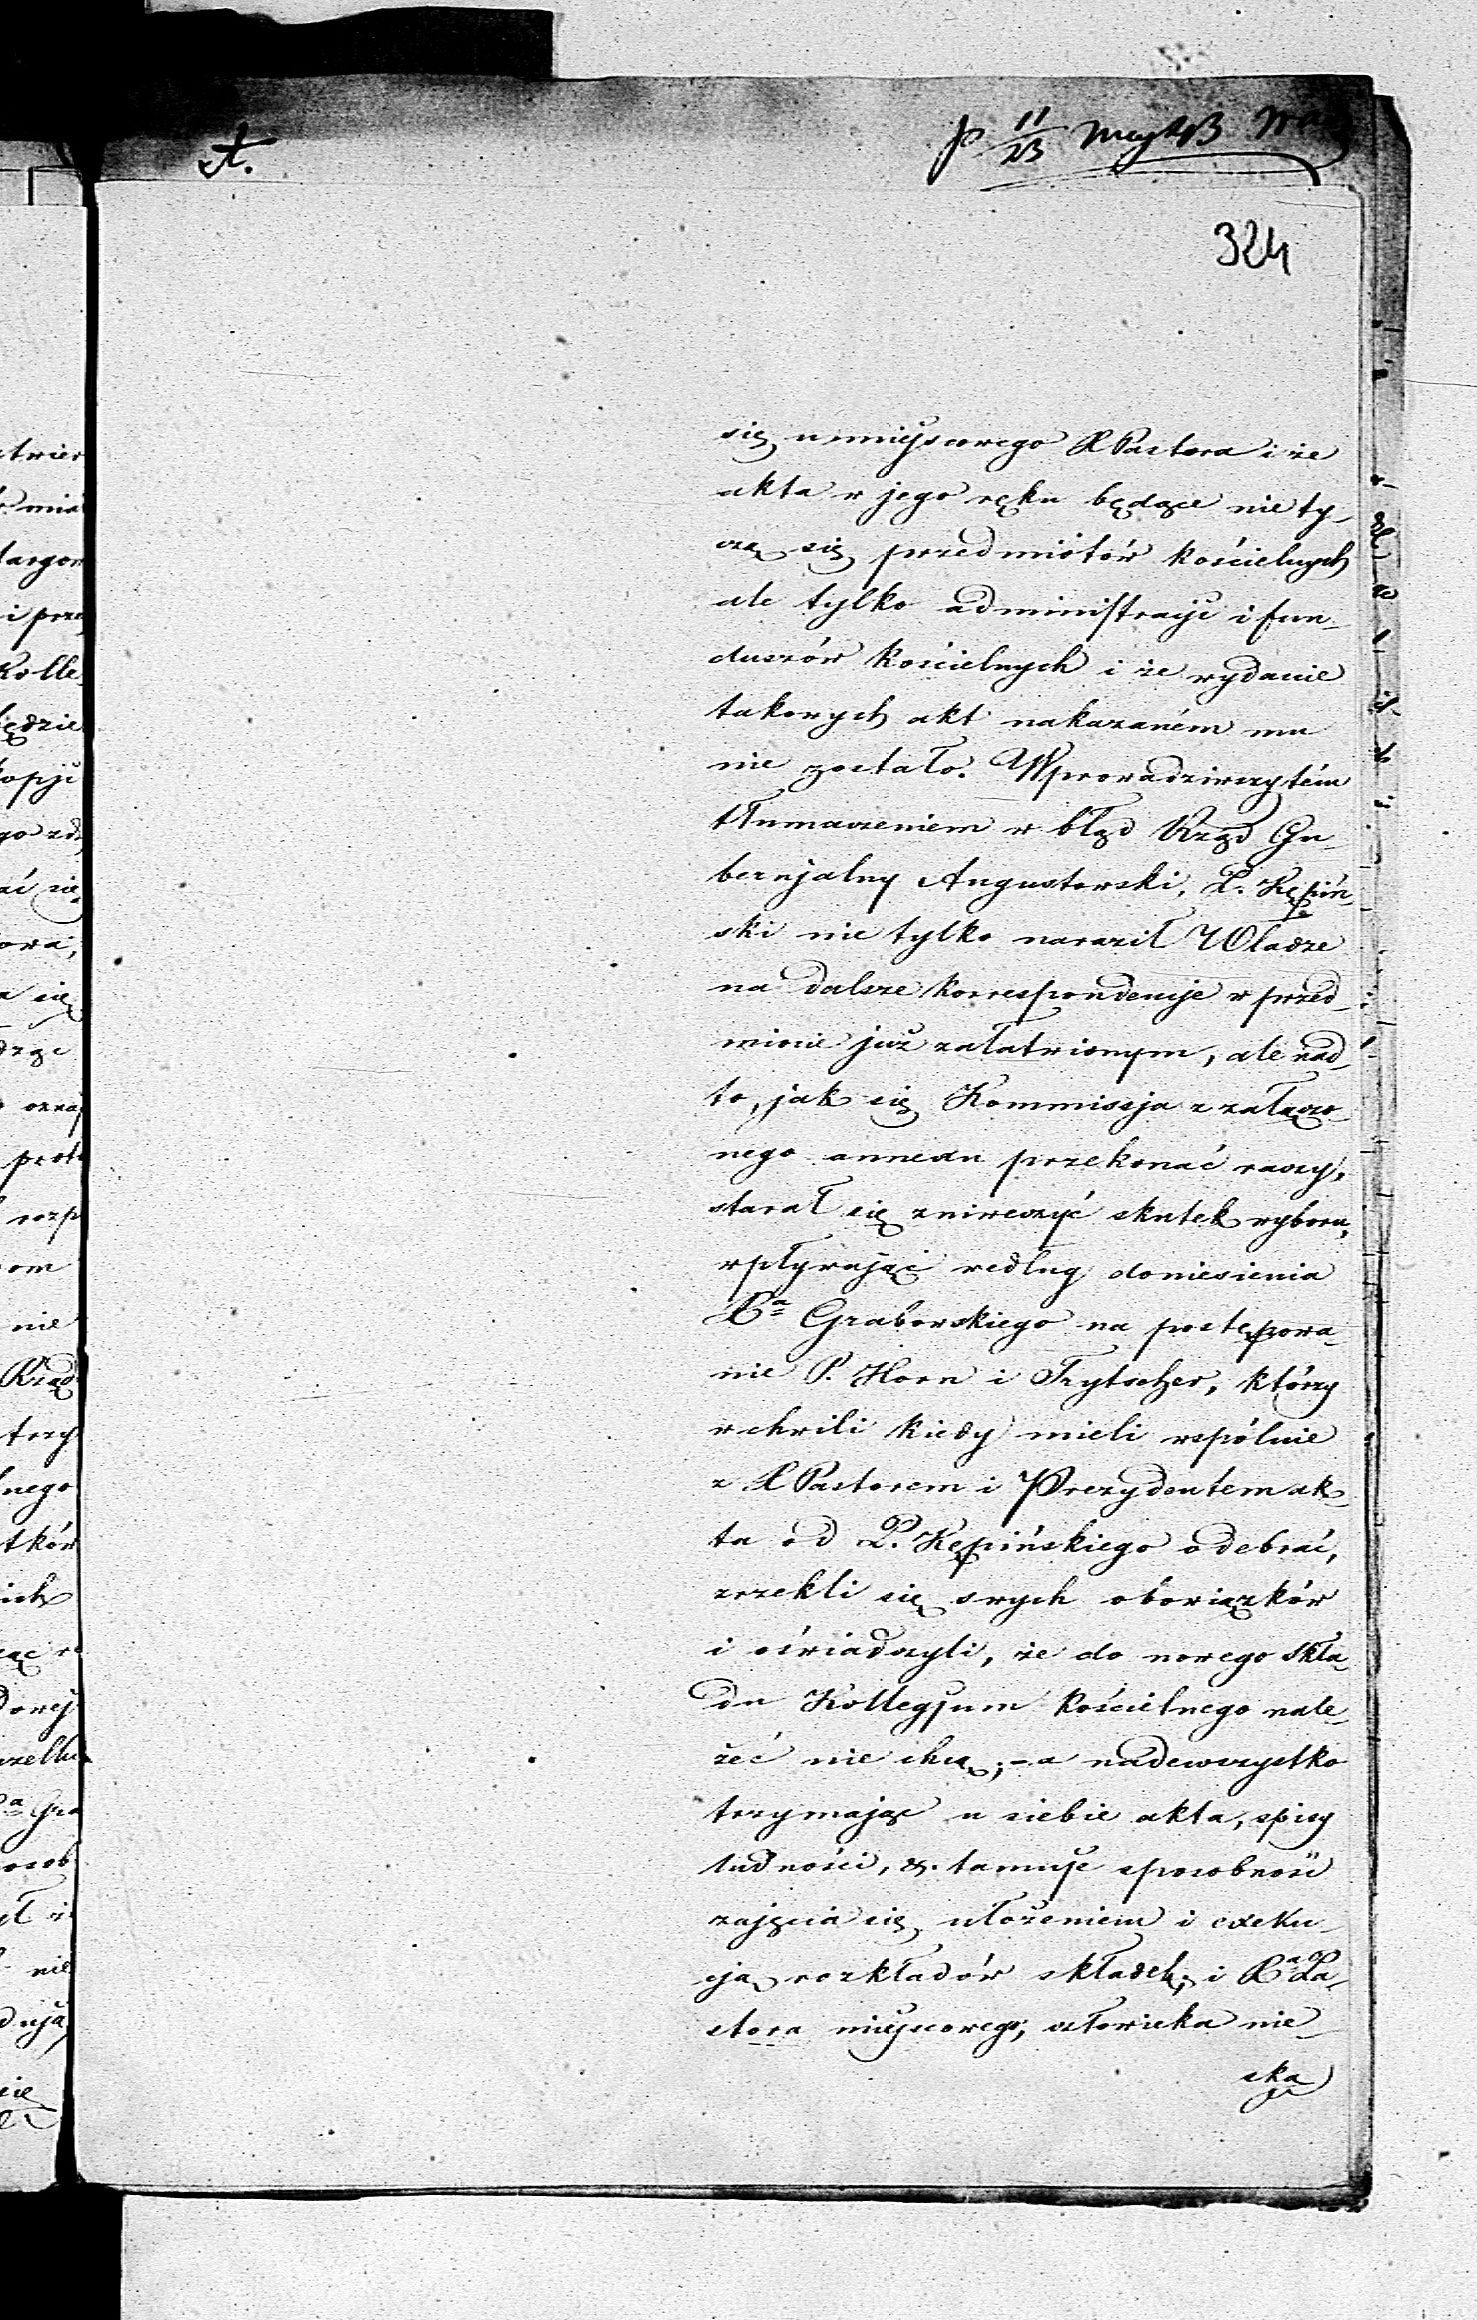 324
się u miejscowego X Pastora i że
akta w jego ręku będące nie ty-
czą się przedmiotów kościelnych
ale tylko administracyi i fun-
duszów kościelnych i że wydanie
takowych akt nakazaném mu
nie zostało. Wprowadziwszy tém
tłumaczeniem w błąd Rząd Gu-
bernjalny Augustowski, P. Kępiń-
ski nie tylko naraził Władze
na dalsze korrespondencje w przed-
miocie już załatwionym, ale nad-
to, jak się Kommissja z załączo-
nego annexu przekonać raczy,
starał się zniweczyć skutek wyboru,
wpływając według doniesienia
Xa Grabowskiego na postępowa-
nie P. Horn i Frytscher, którzy
w chwili kiedy mieli wspólnie
z X Pastorem i Prezydentem ak-
ta od P. Kępińskiego odebrać,
zrzekli się swych obowiązków
i oświadczyli, że do nowego skła-
du Kollegjum Kościelnego nale-
żeć nie chcą; - a nadewszystko
trzymając u siebie akta, spisy
ludności, &. tamuje sposobność
zajęcia się ułożeniem i exeku-
cją rozkładów składek; i Xa Pa-
stora miejscowego, człowieka nie-
ska